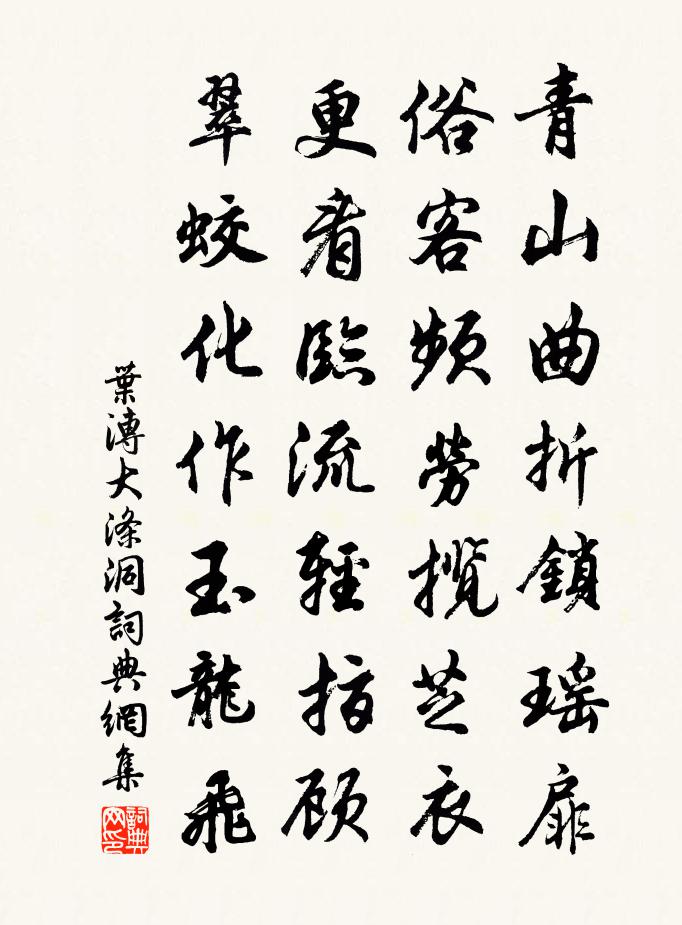 青山曲折鎖瑶扉
俗客頻勞攬芝衣
更看臨流輕指顾
翠蛟化作玉龍飛
葉漙大滌洞詞典網集
詞典网印